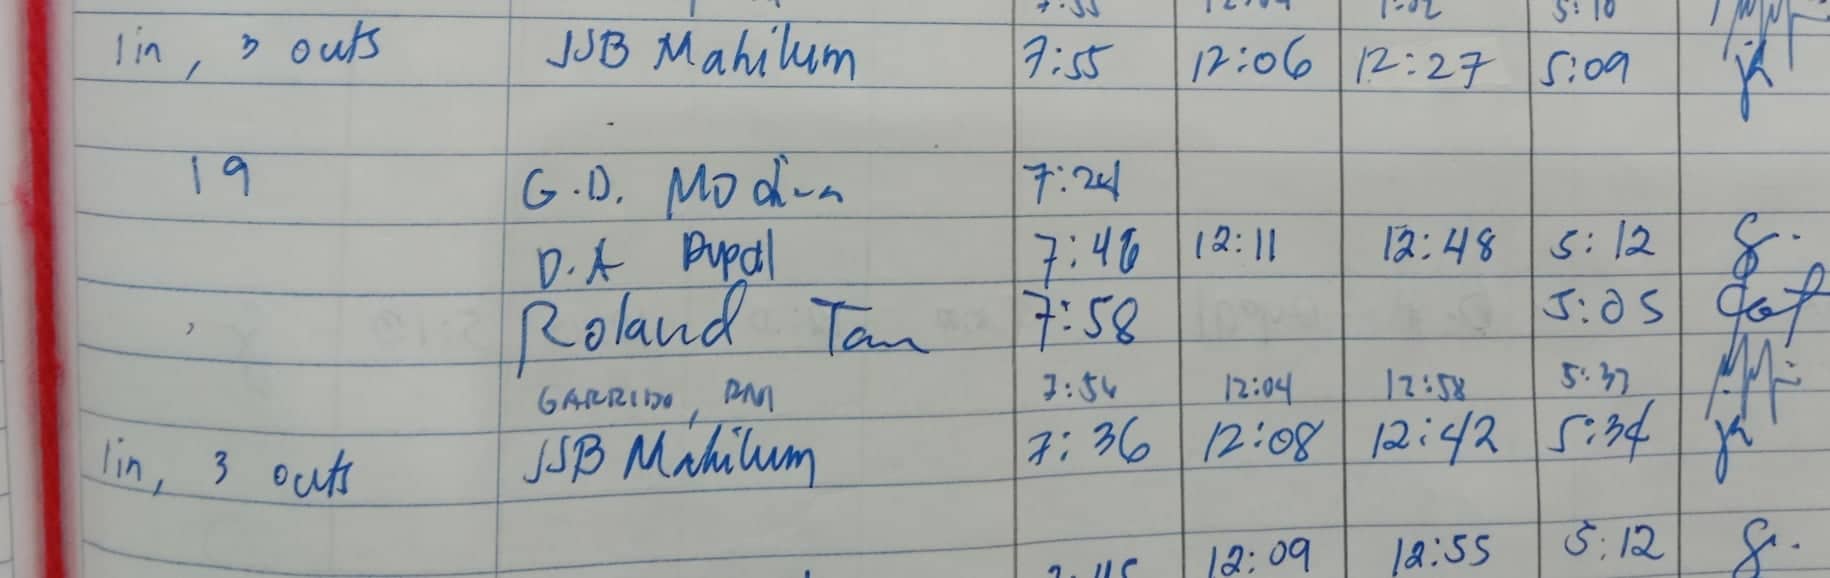 1in, 3 outs JSB Mahilum 7:55 12:06 12:27 5:09
19 G.D. 7:24
D.A Pupal 7:46 12:11 12:48 5:12
Roland Tan 7:58 5:05
GARRIDO, RM 7:56 12:04 12:58 5:37
1in, 3 outs JSB Mahilum 7:36 12:08 12:42 5:34
12:09 12:55 5:12